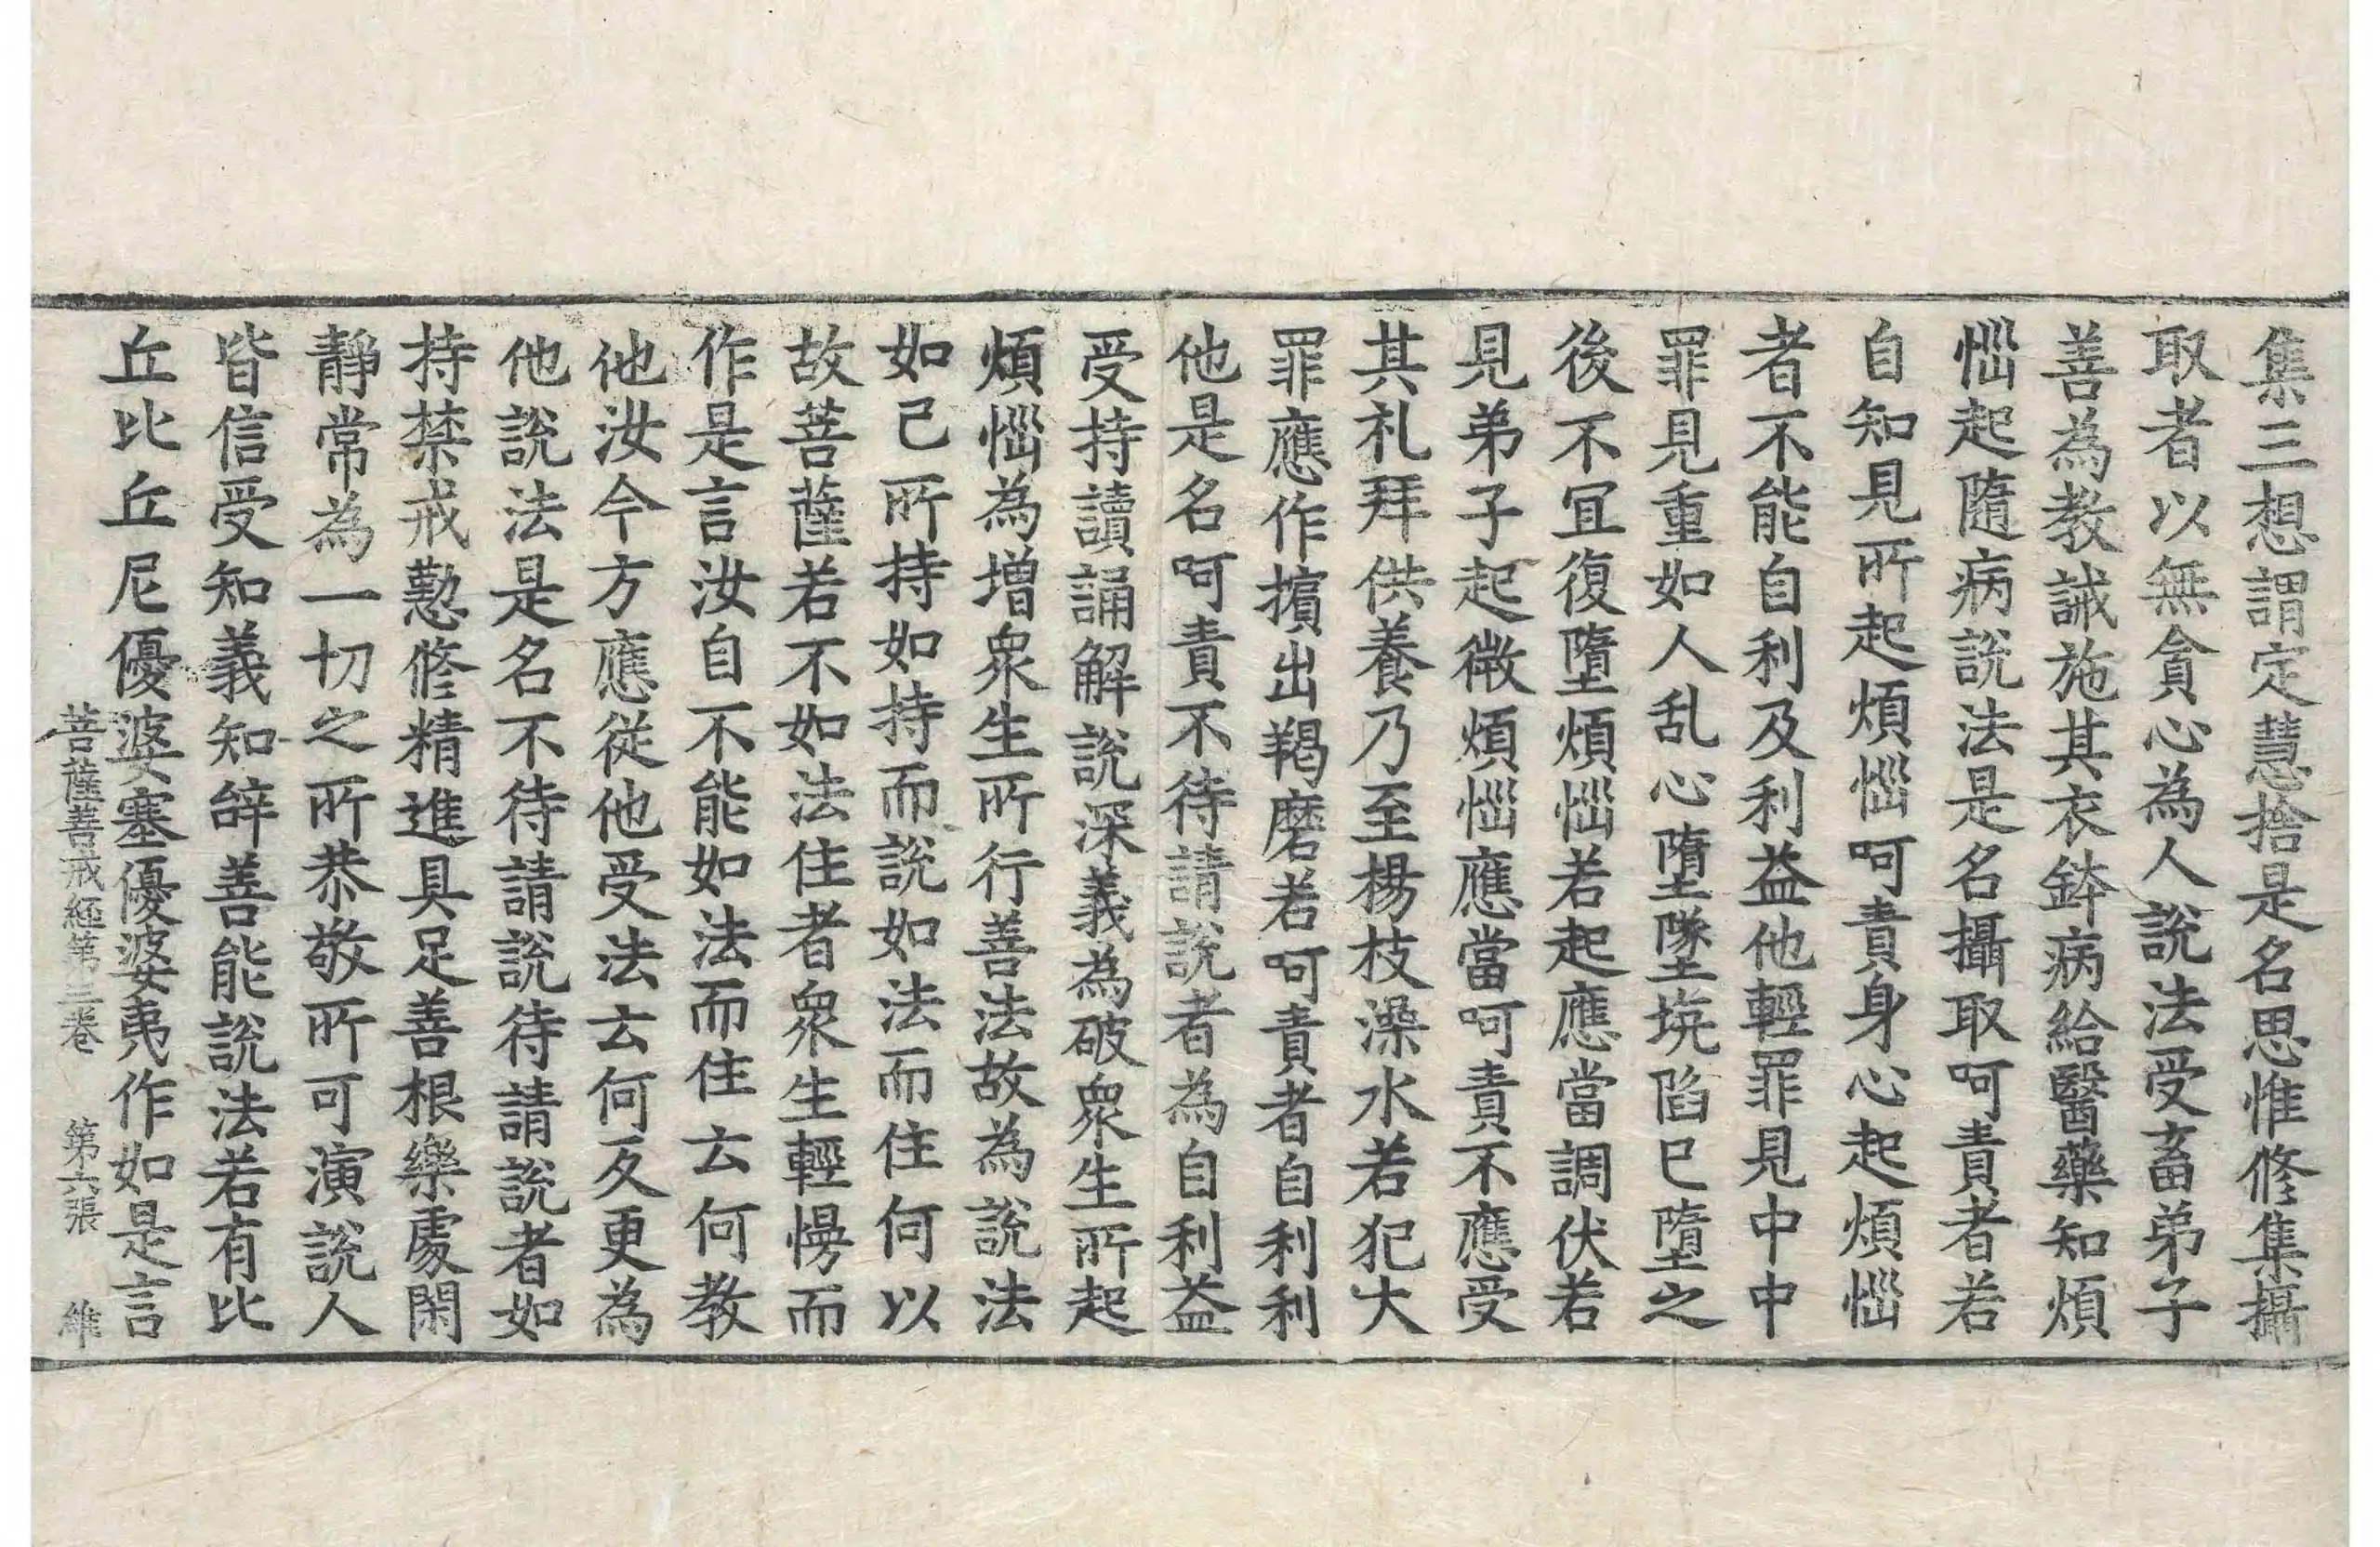 集三想謂定慧捨是名思惟修集攝
取者以無貪心為人說法受畜弟子
善為教誡施其衣鉢病給醫藥知煩
惱起隨病說法是名攝取呵責者若
自知見所起煩惱呵責身心起煩惱
者不能自利及利益他輕罪見中中
罪見重如人乱心墮墜坑陷已墮之
後不宜復墮煩惱若起應當調伏若
見弟子起微煩惱應當呵責不應受
其礼拜供養乃至楊枝澡水若犯大
罪應作擯出羯磨若呵責者自利利
他是名呵責不待請說者為自利益
受持讀誦解說深義為破眾生所起
煩惱為增眾生所行善法故為說法
如己所持如持而說如法而住何以
故菩薩若不如法住者眾生輕慢而
作是言汝自不能如法而住云何教
他汝今方應從他受法云何反更為
他說法是名不待請說待請說者如
持禁戒懃修精進具足善根樂處閑
靜常為一切之所恭敬所可演說人
皆信受知義知辝善能說法若有比
丘比丘尼優婆塞優婆夷作如是言
菩薩善戒經第三卷　第六張　維